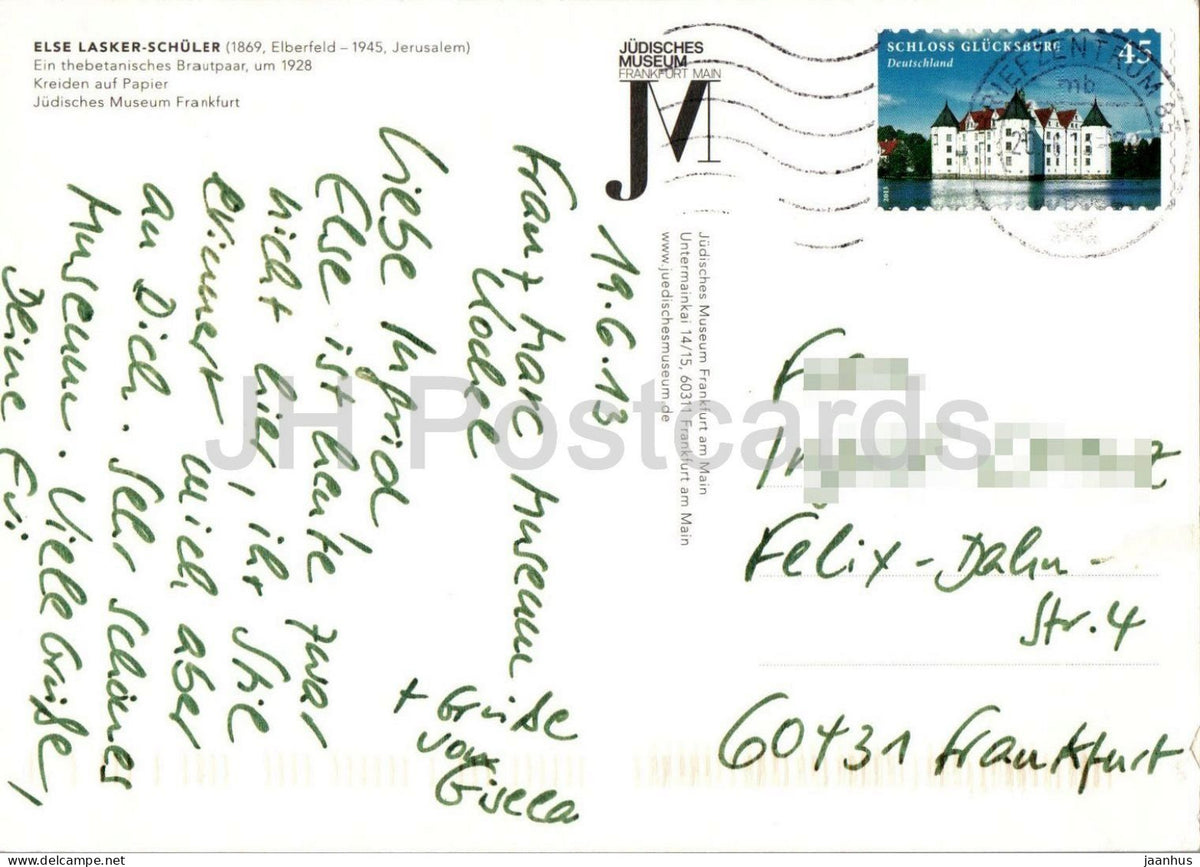 ELSE LASKER-SCHÜLER (1869, Elberfeld – 1945, Jerusalem)
Ein thebetanisches Brautpaar, um 1928
Kreiden auf Papier
Jüdisches Museum Frankfurt
JÜDISCHES
MUSEUM
FRANKFURT MAIN
JM
SCHLOSS GLÜCKSBURG 45
Deutschland
2013
BRIEFZENTRUM
Jüdisches Museum Frankfurt am Main
Untermainkai 14/15, 60311 Frankfurt am Main
www.juedischesmuseum.de
19.6.13
Franz Marc Museum
Kochel
Liebe
Else ist heute zwar
nicht hier, ihr Stil
erinnert mich aber
an Dich. Sehr schönes
Museum. Viele Grüße,
Deine Evi
+ Grüße
von
Gisela
Felix-Dahn-
Str. 4
60431 Frankfurt
JH Postcards
www.hippostcard.com
jaanhus